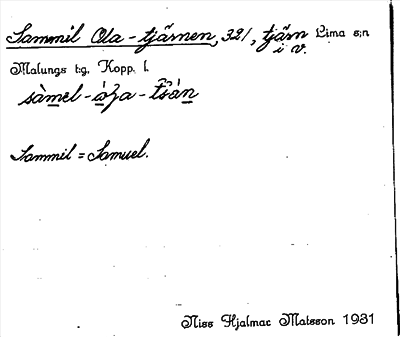 Sammil Ola-tjärnen, 321, tjärn Lima s:n
i v.
Malungs t:g, Kopp. l.
sàmel-
Sammil = Samuel.
Niss Hjalmar Matsson 1931